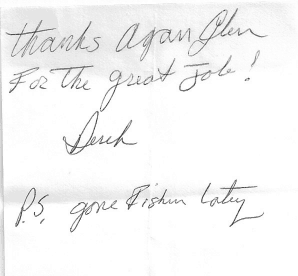 thanks Again Glen
For the great Job!
Derek
P.S. gone Fishin Latez